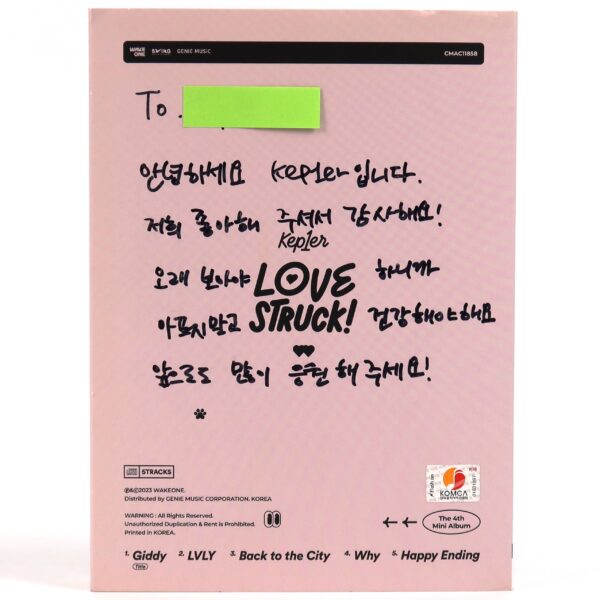 WAKE ONE SWING GENIE MUSIC CMAC11858
To.
안녕하세요 Kep1er입니다.
저희 좋아해 주셔서 감사해요!
Kep1er
오래 보아야 하니까
LOVE STRUCK!
아프지말고 건강해야해요
앞으로도 많이 응원 해 주세요!
5TRACKS
℗&©2023 WAKEONE.
Distributed by GENIE MUSIC CORPORATION. KOREA
WARNING : All Rights Reserved.
Unauthorized Duplication & Rent is Prohibited.
Printed in KOREA.
KOMCA
The 4th
Mini Album
1. Giddy 2. LVLY 3. Back to the City 4. Why 5. Happy Ending
Title